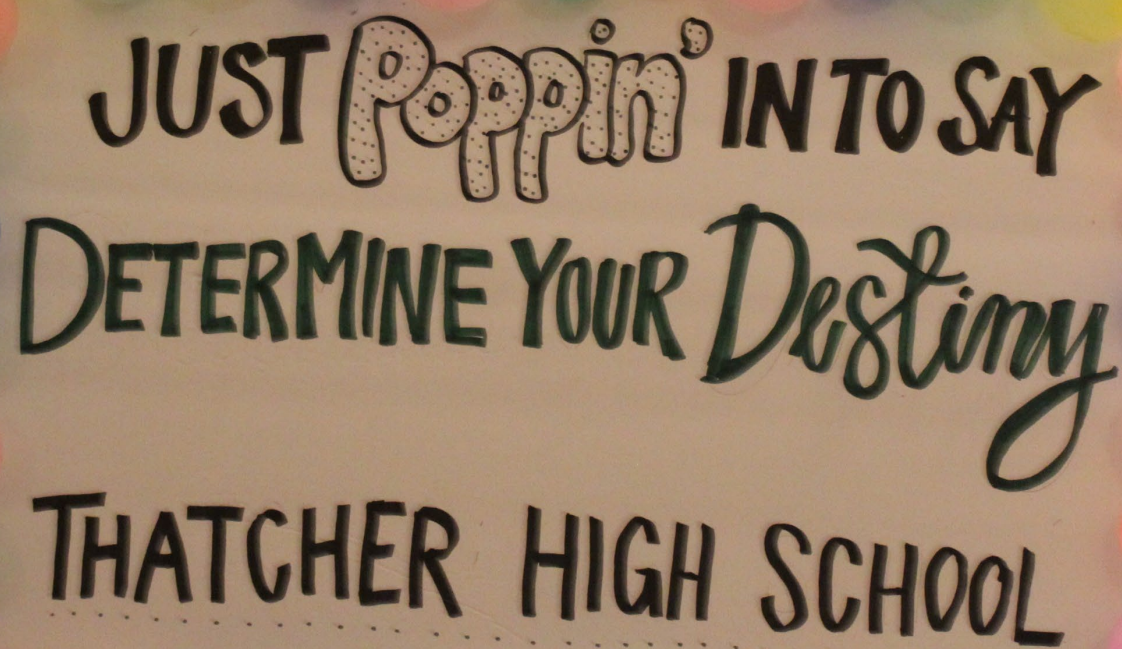 JUST Poppin' IN TO SAY
DETERMINE YOUR Destiny
THATCHER HIGH SCHOOL